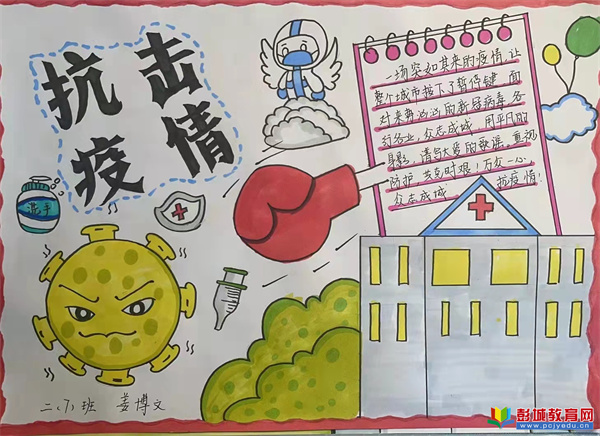 抗击
疫情
洗手
一场突如其来的疫情，让
整个城市按下了暂停键，面
对来势汹汹的新冠病毒各
行各业，众志成城，用平凡的
身影，谱写大爱的歌谣，重视
防护，共克时艰！万众一心
众志成城 抗疫情！
二、（7）班 姜博文
彭城教育网
www.pcjyedu.cn